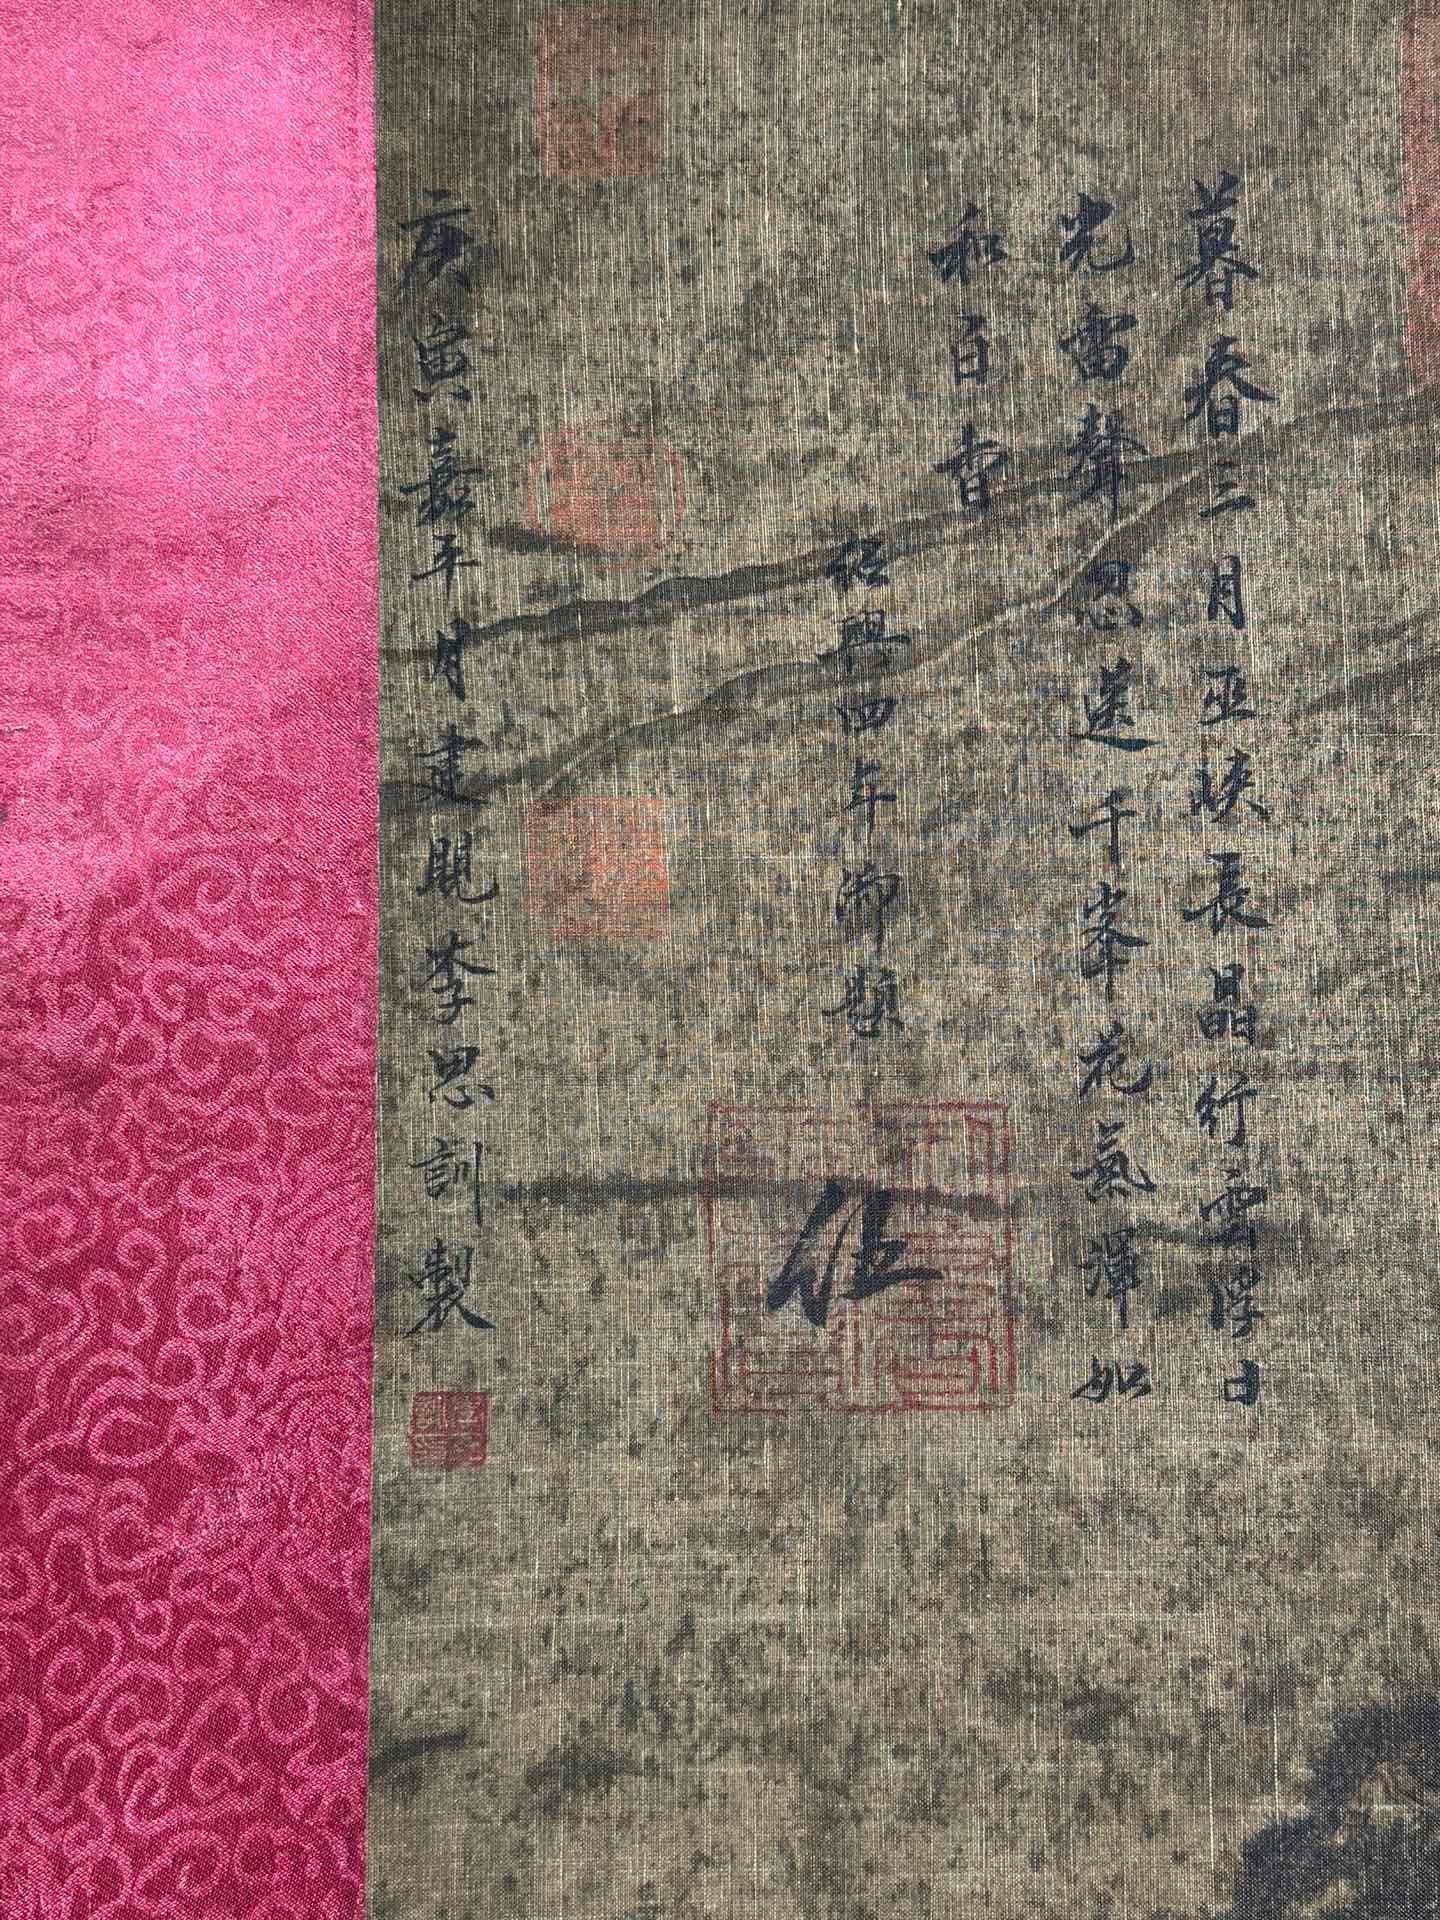 暮春三月巫峽長晶行雲浮日
光雷聲忽送千峯花氣渾如
和百香
紹興四年御題
庚寅嘉平月建睍李思訓製